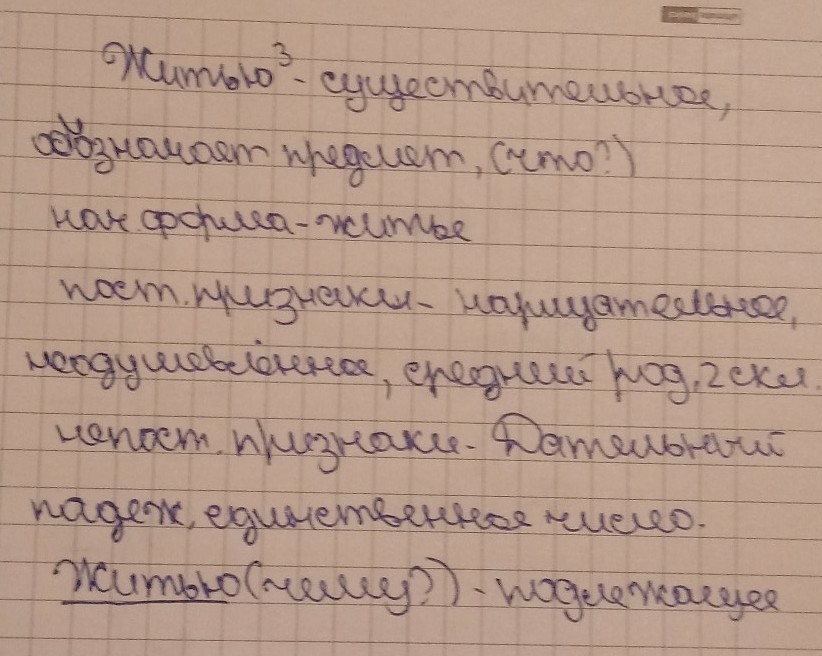 Житью³ - существительное,
обозначает предмет, (что?)
нач. форма - житье
пост. признаки - нарицательное,
неодушевлённое, средний род, 2 скл.
непост. признаки - Дательный
падеж, единственное число.
Житью (чему?) - подлежащее